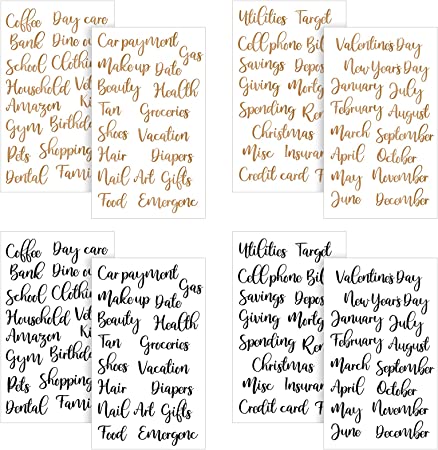 Coffee Day care
Bank Dine ou
School Clothin
Household Vet
Amazon Ki
Gym Birthda
Pets Shopping
Dental Famil
Car payment Gas
Make up Date
Beauty Health
Tan Groceries
Shoes Vacation
Hair Diapers
Nail Art Gifts
Food Emergenc
Utilities Target
Cell phone Bil
Savings Depos
Giving Mortg
Spending Ren
Christmas
Misc Insuran
Credit card F
Valentine's Day
New Year's Day
January July
February August
March September
April October
May November
June December
Coffee Day care
Bank Dine ou
School Clothin
Household Vet
Amazon Ki
Gym Birthda
Pets Shopping
Dental Famil
Car payment Gas
Make up Date
Beauty Health
Tan Groceries
Shoes Vacation
Hair Diapers
Nail Art Gifts
Food Emergenc
Utilities Target
Cell phone Bil
Savings Depos
Giving Mortg
Spending Ren
Christmas
Misc Insuran
Credit card F
Valentine's Day
New Year's Day
January July
February August
March September
April October
May November
June December